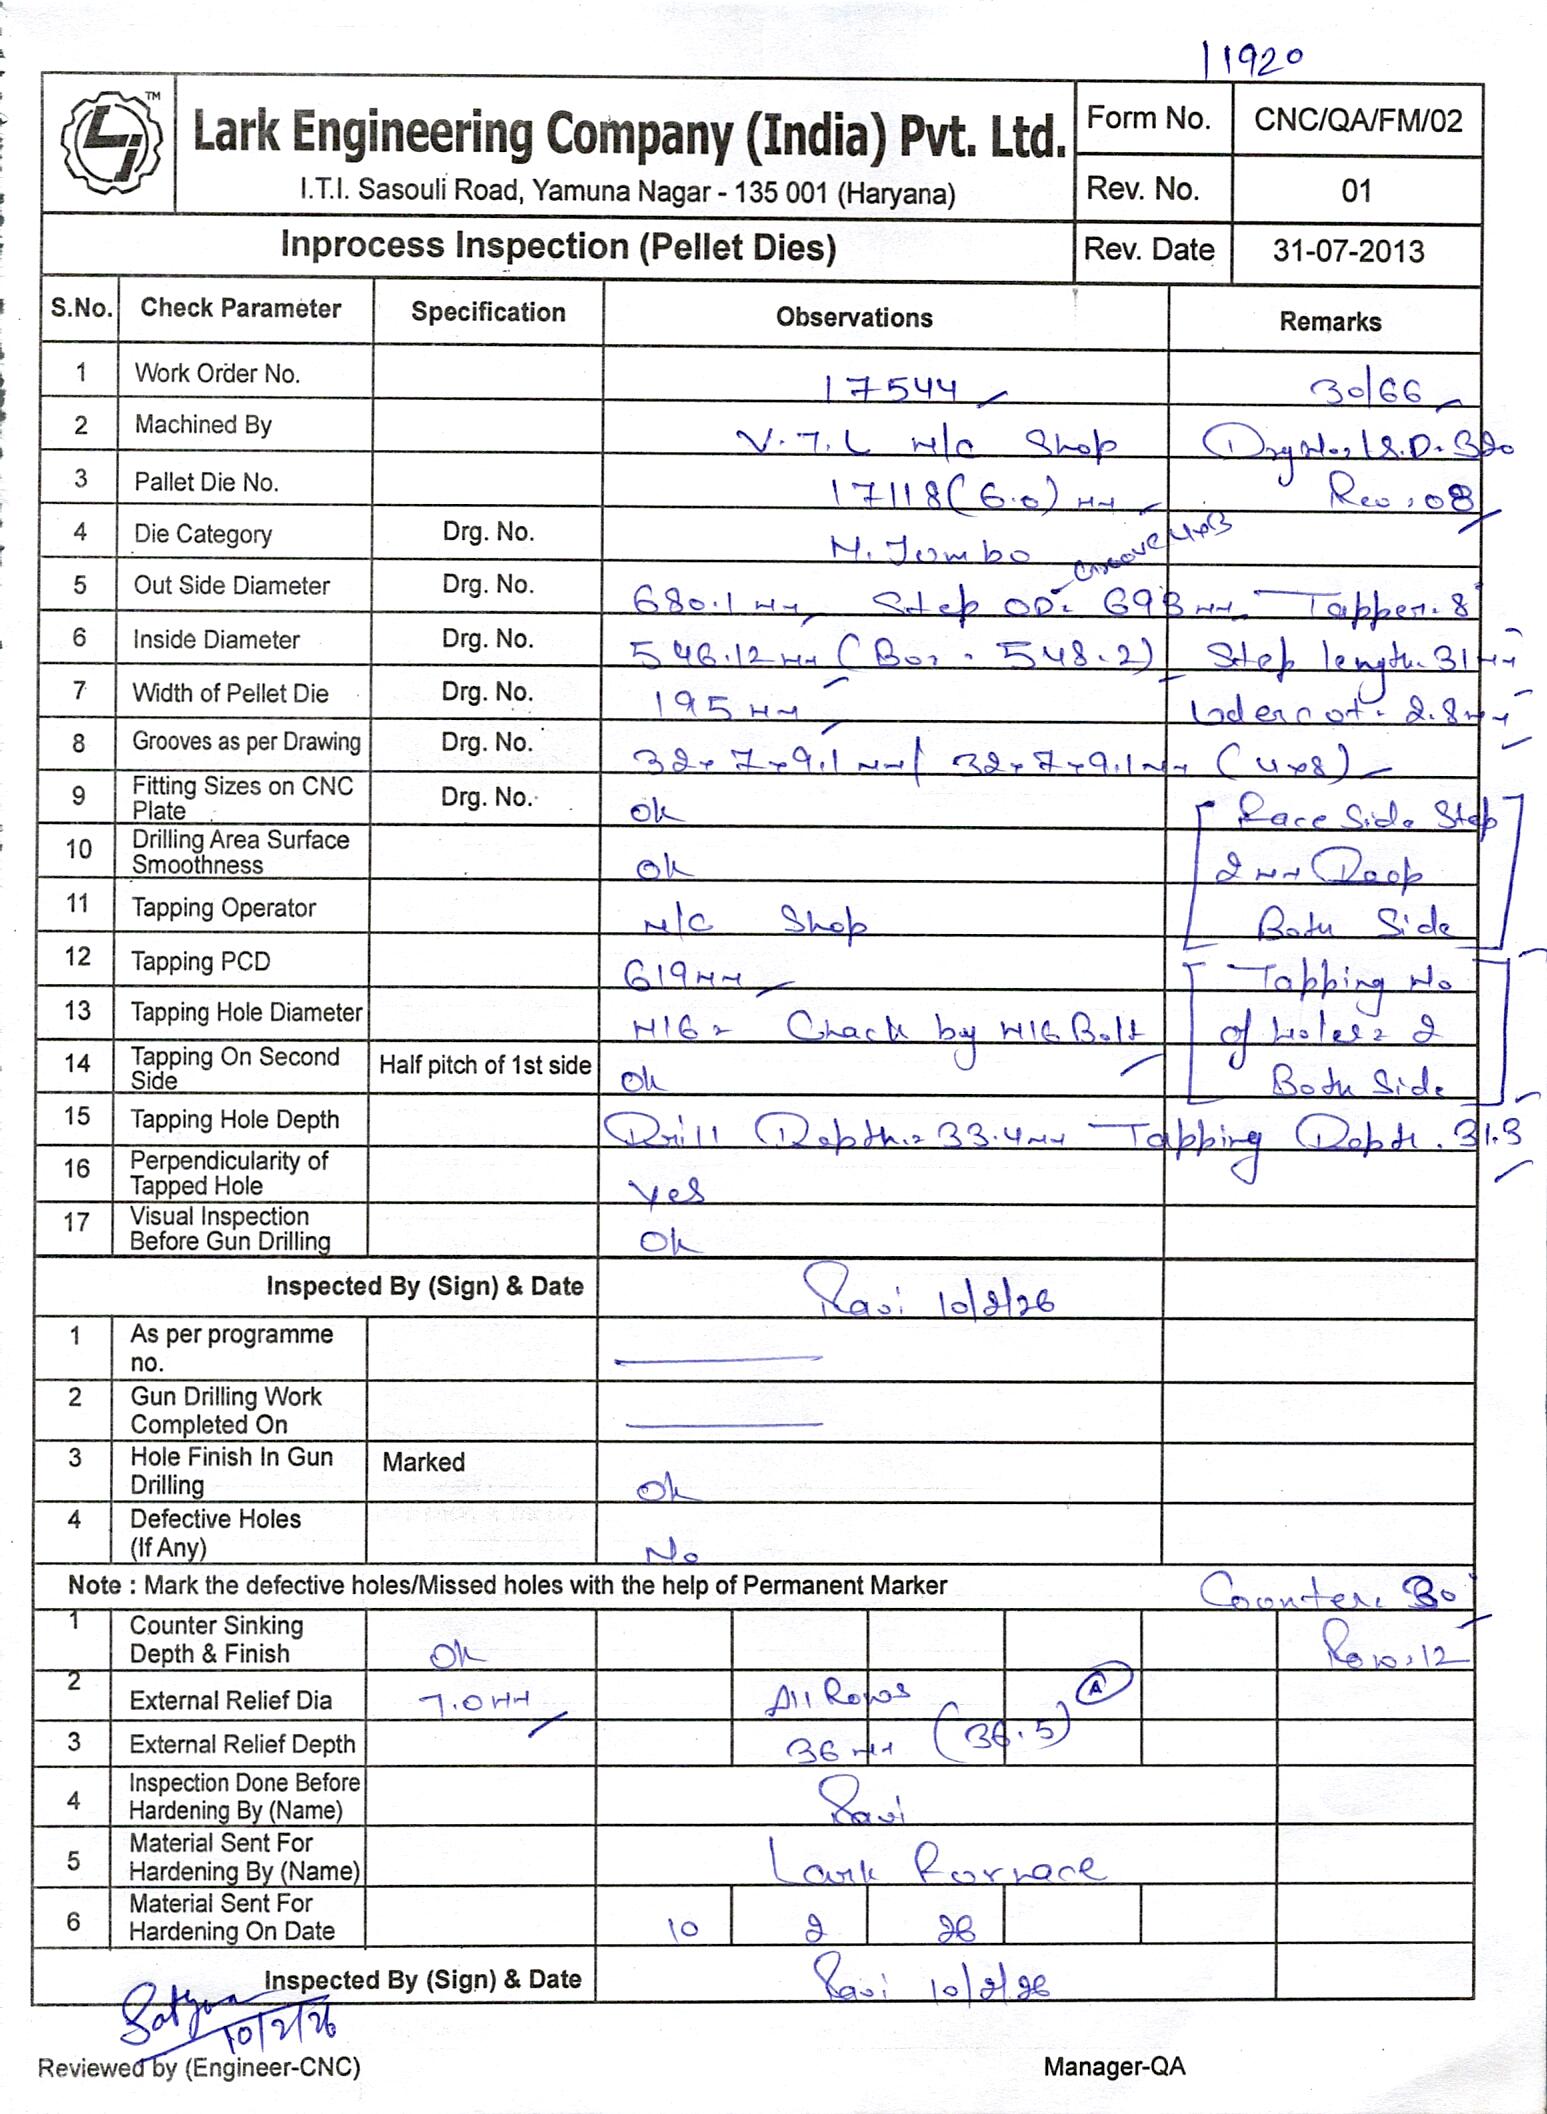 11920
TM
Lark Engineering Company (India) Pvt. Ltd.
I.T.I. Sasouli Road, Yamuna Nagar - 135 001 (Haryana)
Form No. CNC/QA/FM/02
Rev. No. 01
Inprocess Inspection (Pellet Dies) Rev. Date 31-07-2013
S.No. Check Parameter Specification Observations Remarks
1 Work Order No. 17544 30/66
2 Machined By V.T.L M/C Shop Drg No. I.S.D. 320
3 Pallet Die No. 17118 (6.0) MM Rev. 08
4 Die Category Drg. No. M. Jumbo Groove 4x3
5 Out Side Diameter Drg. No. 680.1 MM Step OD. 693 MM Tapper. 8°
6 Inside Diameter Drg. No. 546.12 MM (Bor. 548.2) Step length. 31 MM
7 Width of Pellet Die Drg. No. 195 MM Udercot. 2.8 MM
8 Grooves as per Drawing Drg. No. 32x7x9.1 MM / 32x7x9.1 MM (4x8)
9 Fitting Sizes on CNC Plate Drg. No. Ok Race Side Step
10 Drilling Area Surface Smoothness Ok 2 MM Deep
11 Tapping Operator M/C Shop Both Side
12 Tapping PCD 619 MM Tapping No
13 Tapping Hole Diameter M16 - Check by M16 Bolt of Holes = 2
14 Tapping On Second Side Half pitch of 1st side Ok Both Side
15 Tapping Hole Depth Drill Depth. 33.4 MM Tapping Depth. 31.3
16 Perpendicularity of Tapped Hole Yes
17 Visual Inspection Before Gun Drilling Ok
Inspected By (Sign) & Date Ravi 10/2/26
1 As per programme no.
2 Gun Drilling Work Completed On
3 Hole Finish In Gun Drilling Marked Ok
4 Defective Holes (If Any) No
Note : Mark the defective holes/Missed holes with the help of Permanent Marker Counter. 30°
1 Counter Sinking Depth & Finish Ok Row. 12
2 External Relief Dia 7.0 MM All Rows A
3 External Relief Depth 36 MM (36.5)
4 Inspection Done Before Hardening By (Name) Ravi
5 Material Sent For Hardening By (Name) Lark Furnace
6 Material Sent For Hardening On Date 10 2 26
Inspected By (Sign) & Date Ravi 10/2/26
Satyam
10/2/26
Reviewed by (Engineer-CNC) Manager-QA